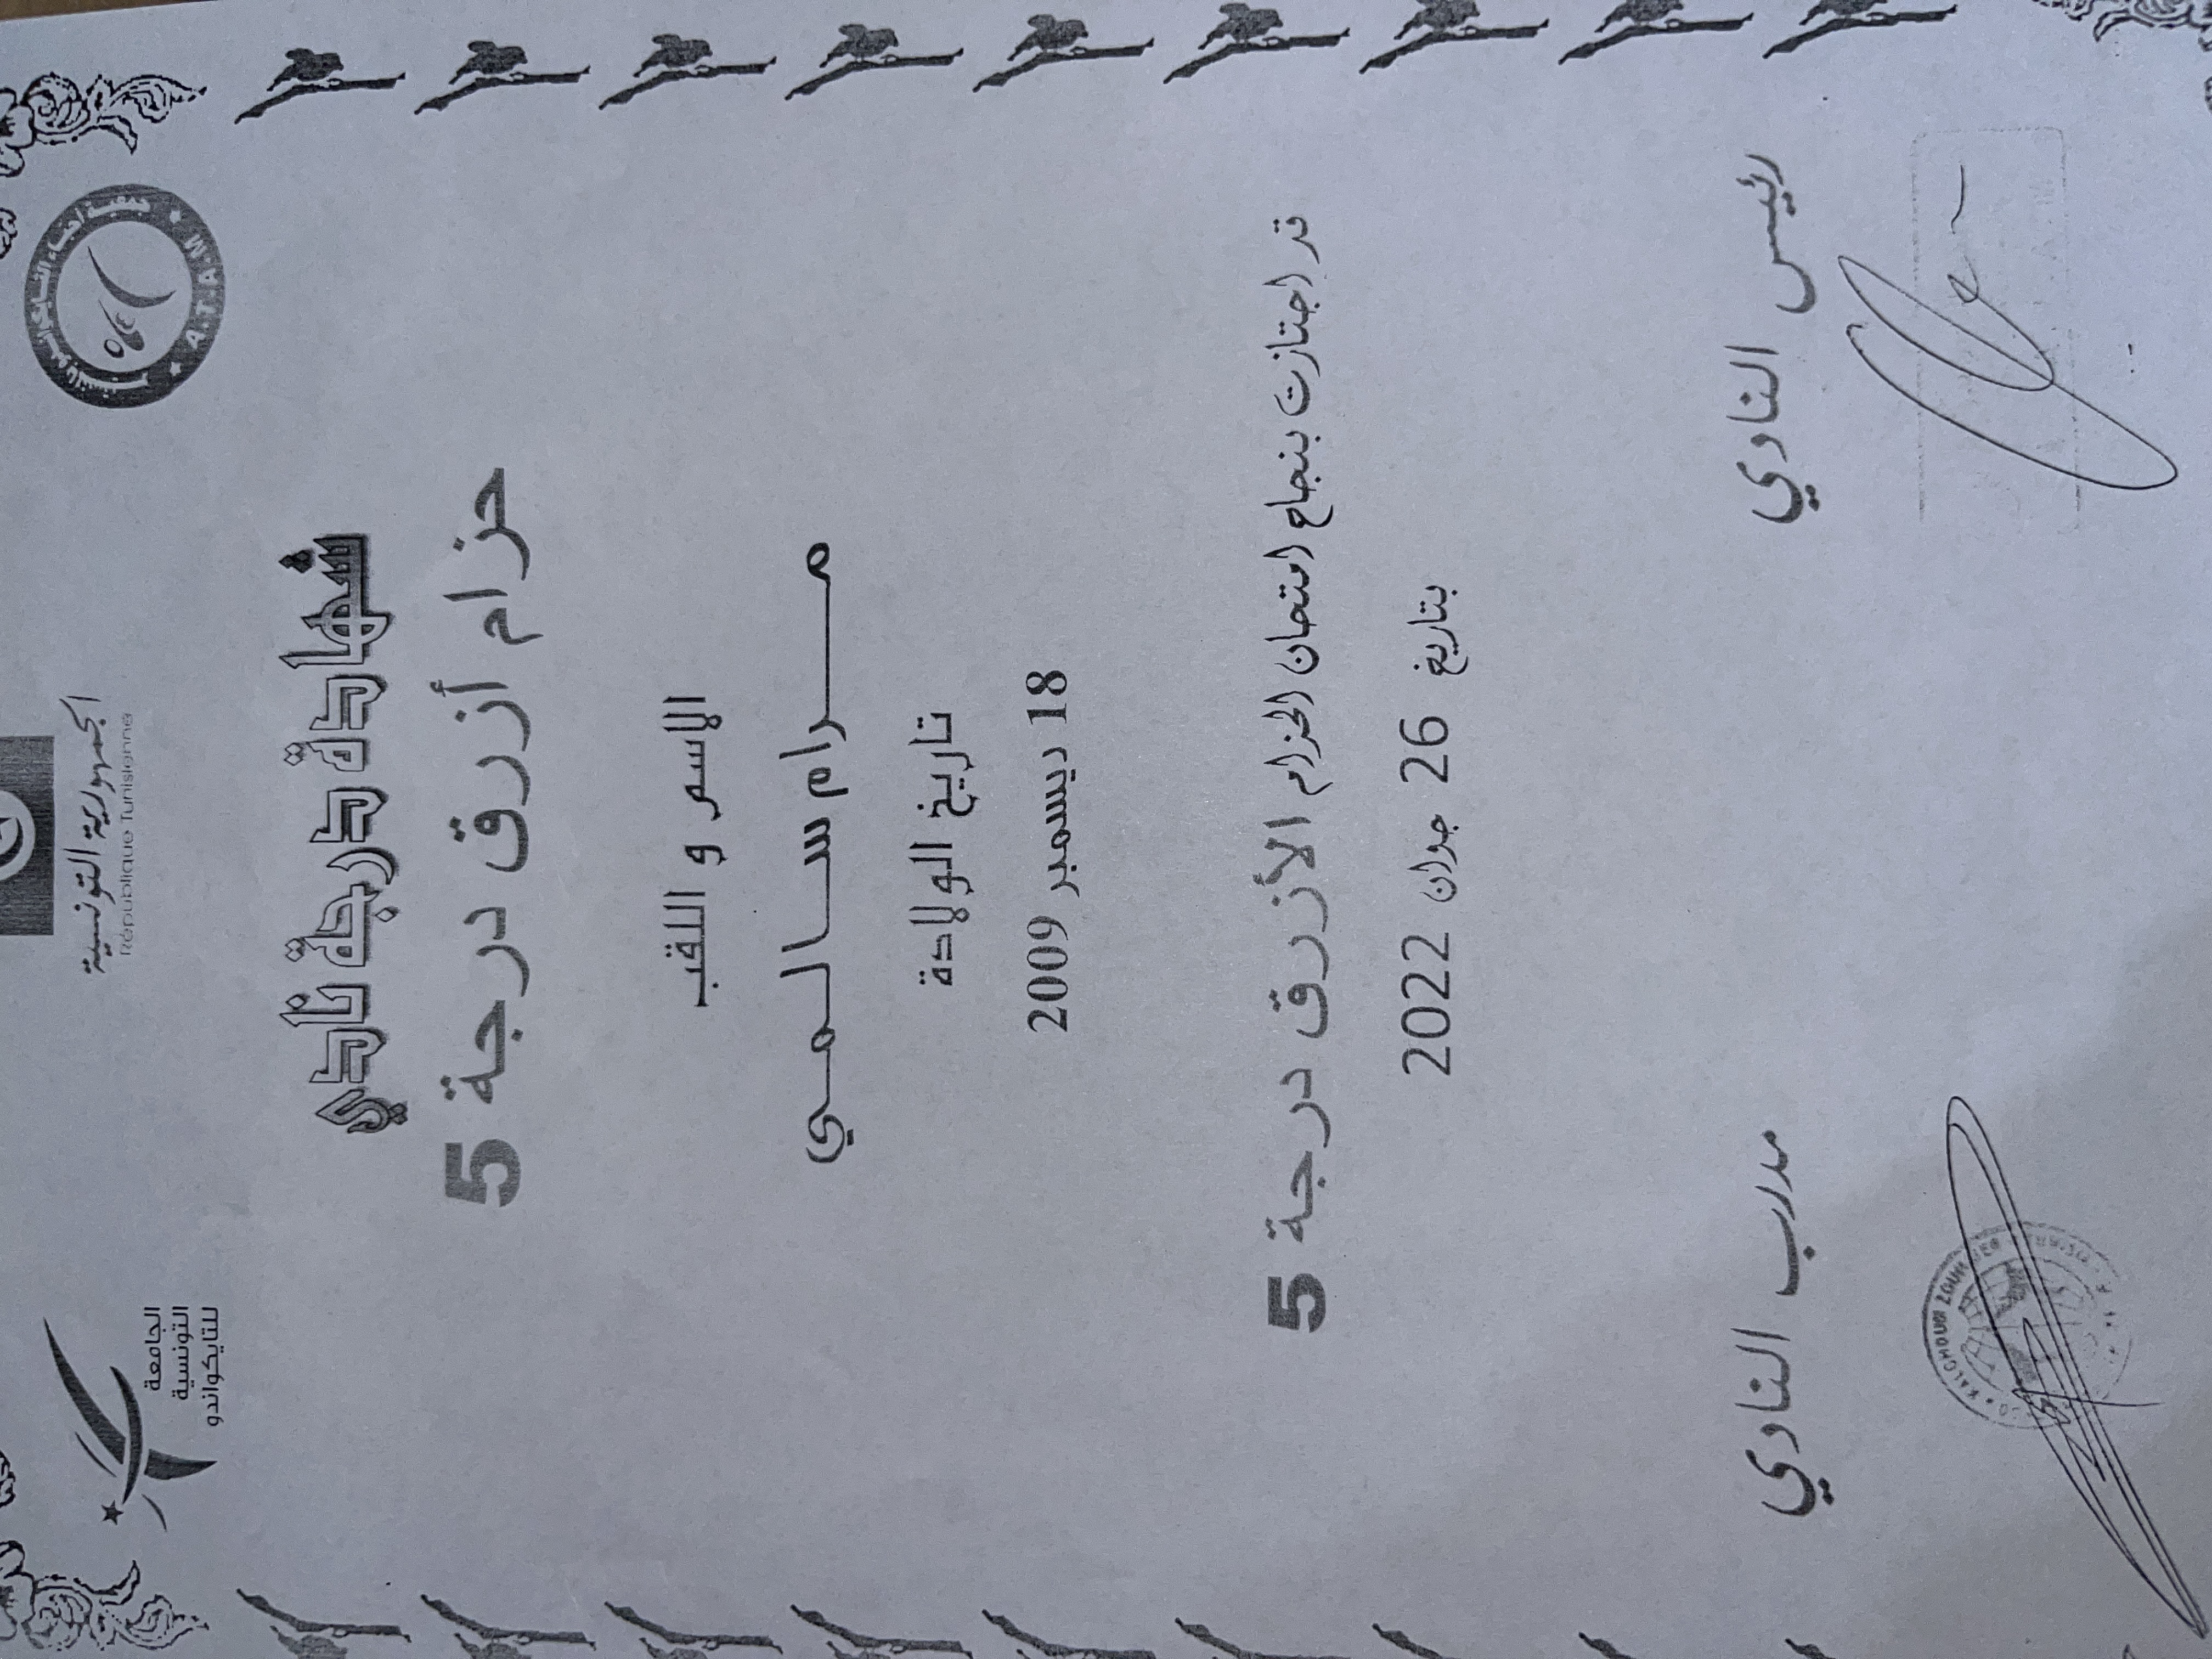 الجمهورية التونسية
République Tunisienne
الجامعة
التونسية
للتايكواندو
A.T.A.M
شهادة درجة نادي
حزام أزرق درجة 5
الاسم و اللقب
مرام سالمي
تاريخ الولادة
18 ديسمبر 2009
قد اجتازت بنجاح امتحان الحزام الأزرق درجة 5
بتاريخ 26 جوان 2022
رئيس النادي
مدرب النادي